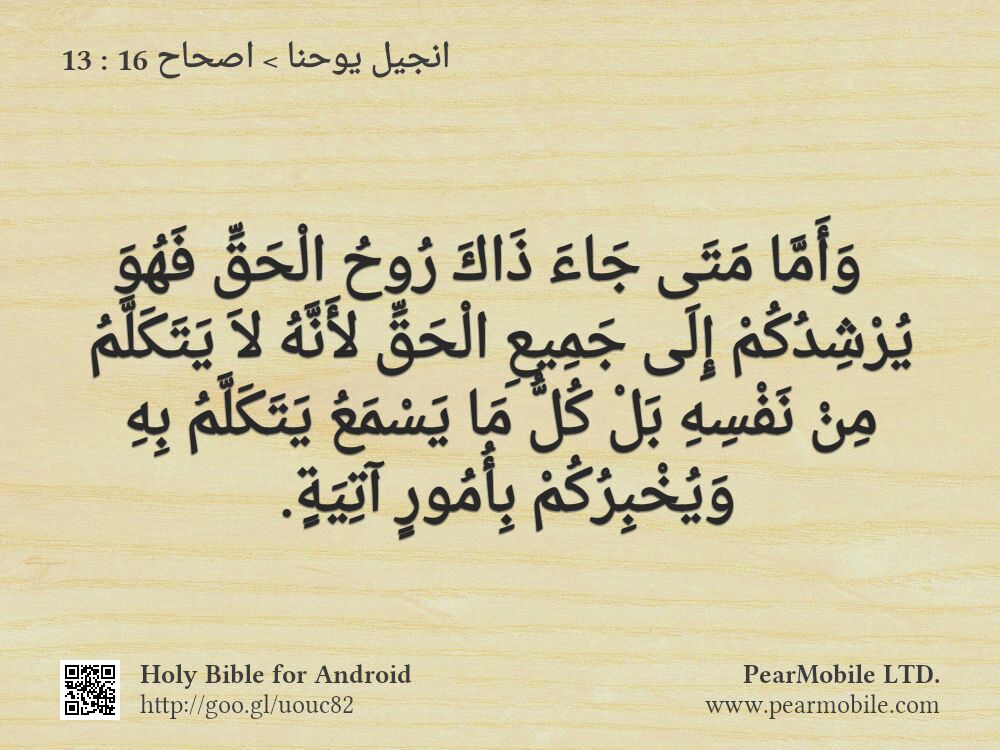 انجيل يوحنا > اصحاح 16 : 13
وَأَمَّا مَتَى جَاءَ ذَاكَ رُوحُ الْحَقِّ فَهُوَ
يُرْشِدُكُمْ إِلَى جَمِيعِ الْحَقِّ لأَنَّهُ لاَ يَتَكَلَّمُ
مِنْ نَفْسِهِ بَلْ كُلُّ مَا يَسْمَعُ يَتَكَلَّمُ بِهِ
وَيُخْبِرُكُمْ بِأُمُورٍ آتِيَةٍ.
Holy Bible for Android
http://goo.gl/uouc82
PearMobile LTD.
www.pearmobile.com